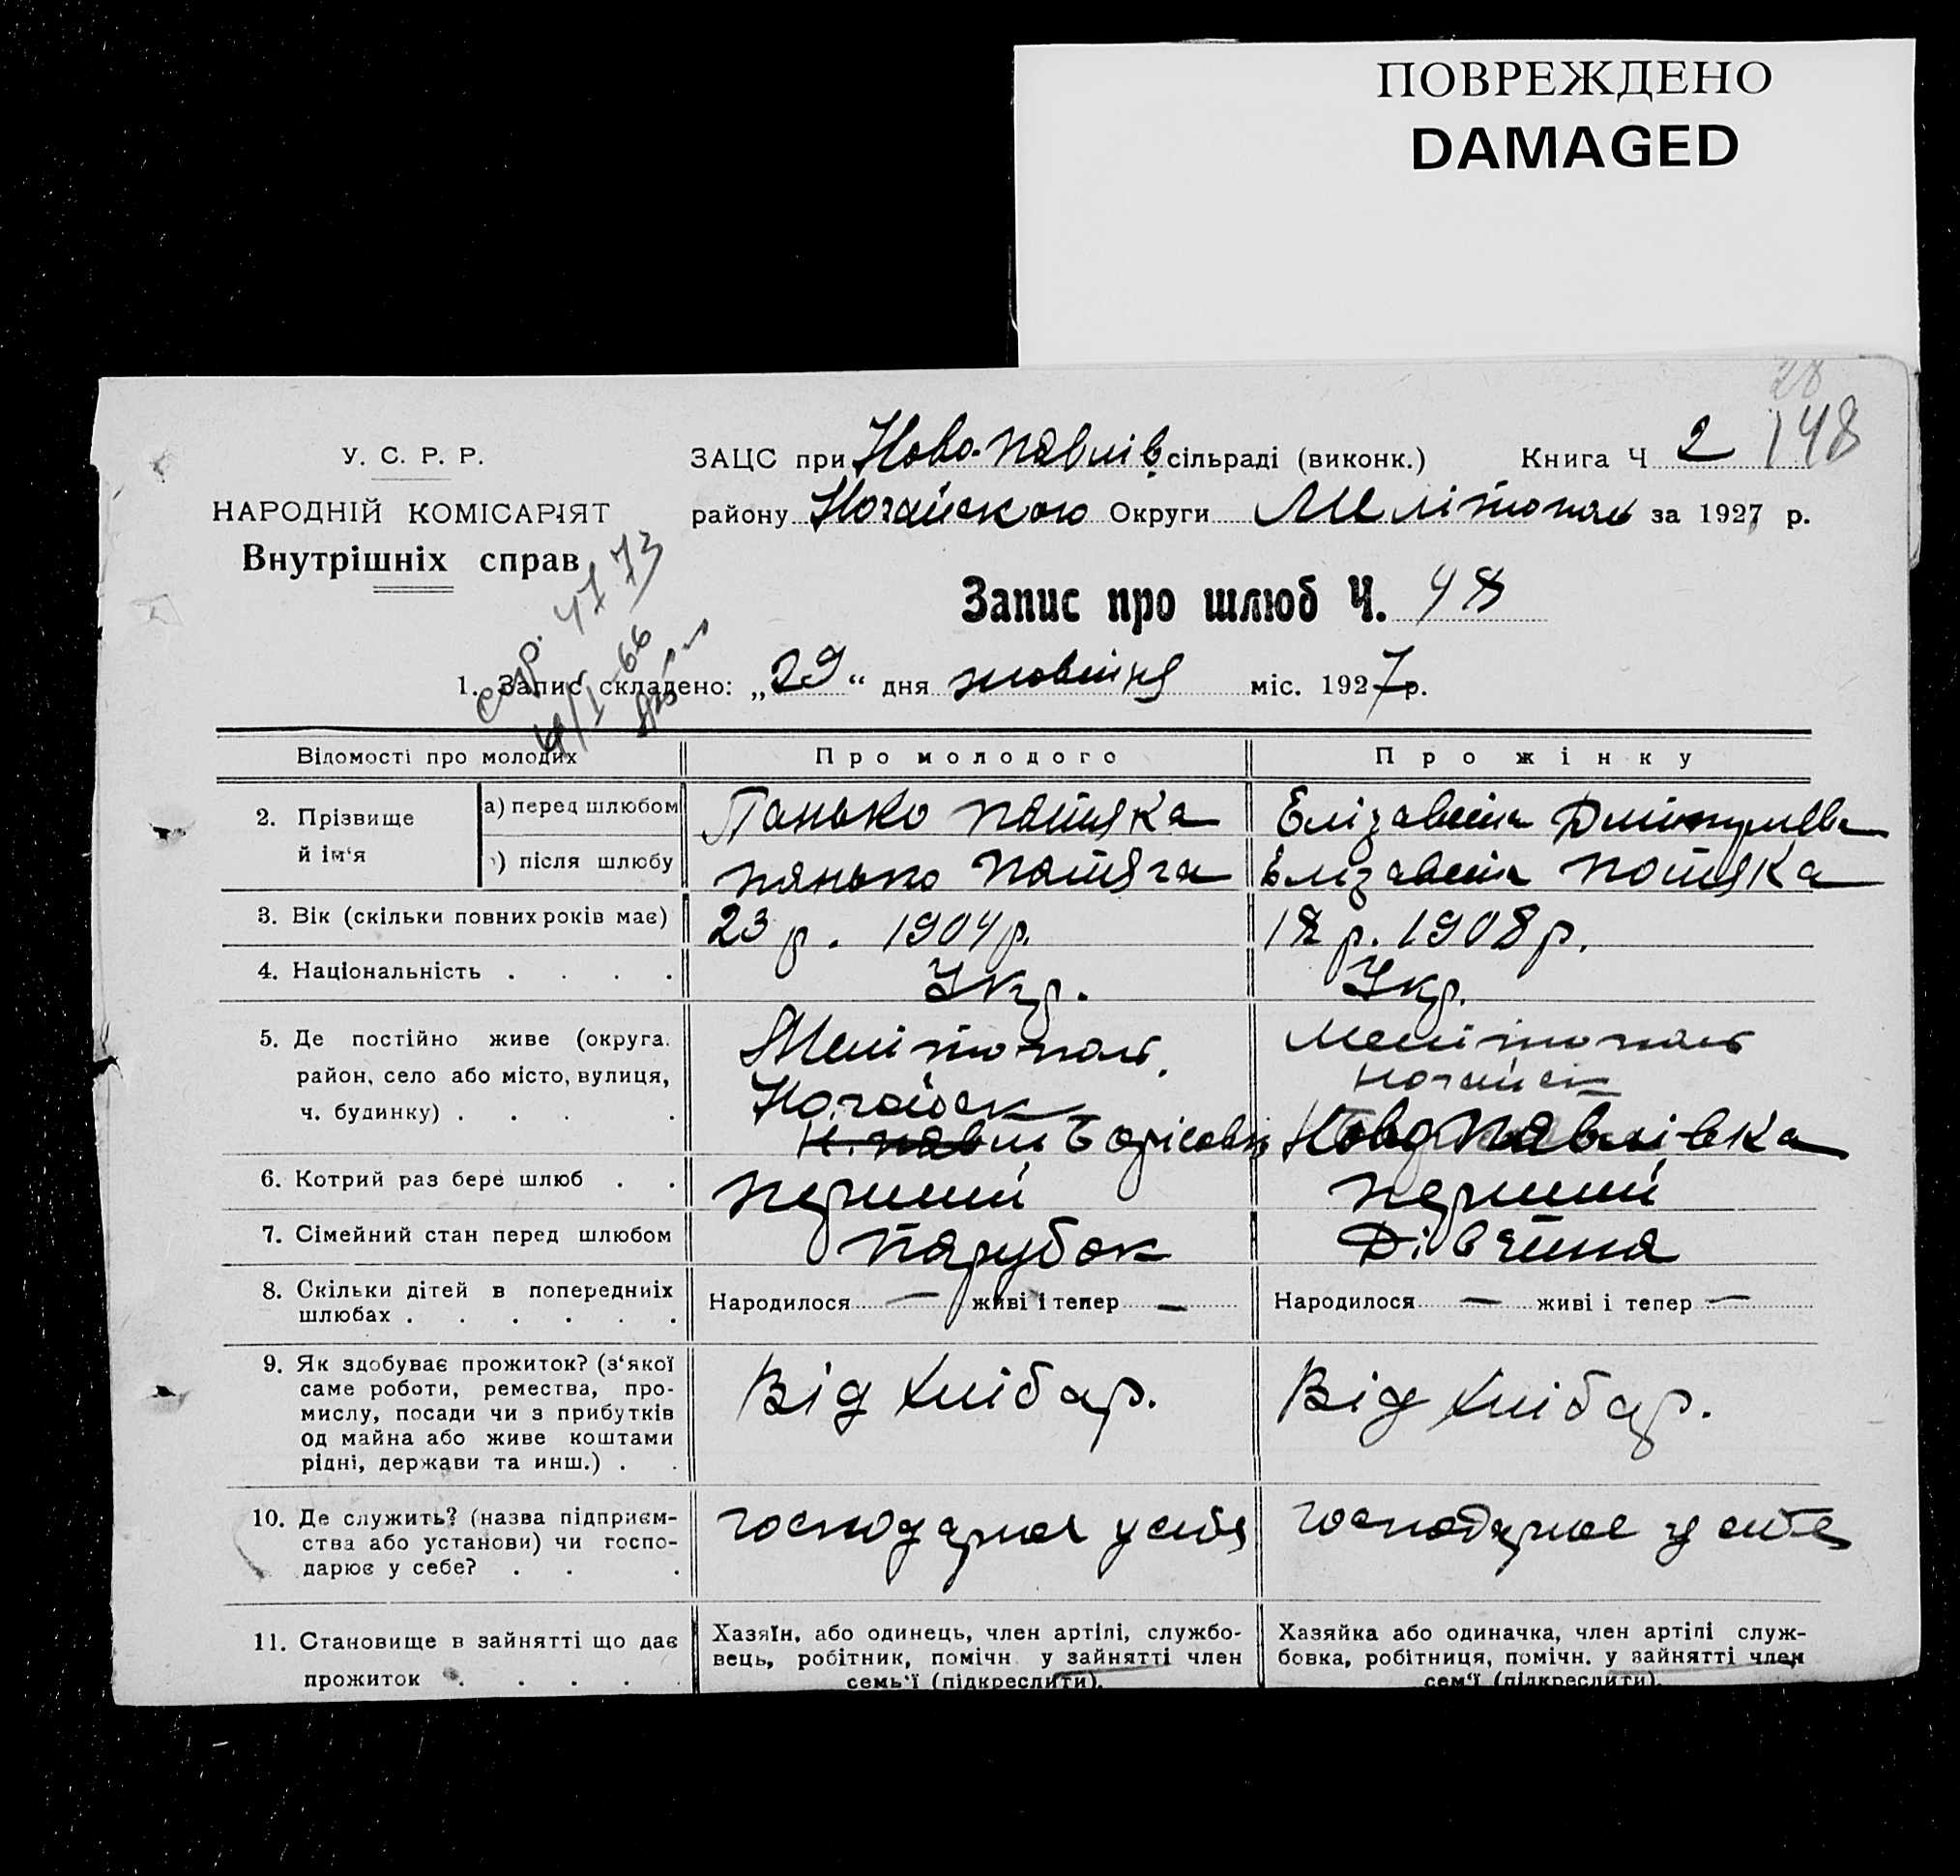 ПОВРЕЖДЕНО
DAMAGED
28
148
У. С. Р. Р.
НАРОДНІЙ КОМІСАРІЯТ
Внутрішніх справ
ЗАЦС при Ново-Павлів сільраді (виконк.) Книга Ч 2
району Ногайского Округи Мелітополь за 1927 р.
Запис про шлюб Ч. 48
4773
1. Запис складено: „29“ дня жовтня міс. 1927 р.
Відомості про молодих Про молодого Про жінку
2. Прізвище й ім‘я
а) перед шлюбом Панько Патяка Елізавета
) після шлюбу Панько Потяга Елізавета Потяка
3. Вік (скільки повних років має) 23 р. 1904 р. 18 р. 1908 р.
4. Національність . . . . Укр. Укр.
5. Де постійно живе (округа. район, село або місто, вулиця, ч. будинку) . . . .
Мелітополь. Ногайск Борісовка
Мелітополь Ногайск Ново Павлівка
6. Котрий раз бере шлюб . . перший перший
7. Сімейний стан перед шлюбом Парубок Дівчина
8. Скільки дітей в попередніх шлюбах . . . . . .
Народилося — живі і тепер —
Народилося — живі і тепер —
9. Як здобуває прожиток? (з‘якої
саме роботи, ремества, про-
мислу, посади чи з прибутків
од майна або живе коштами
рідні, держави та инш.) . .
Від хлібар. Від хлібар.
10. Де служить? (назва підприєм-
ства або установи) чи госпо-
дарює у себе? . . .
господарює у себе господарює у себе
11. Становище в зайнятті що дає
прожиток . . . . .
Хазяїн, або одинець, член артілі, службо-
вець, робітник, помічн у зайнятті член
семь‘ї (підкреслити).
Хазяйка або одиначка, член артілі служ-
бовка, робітниця, помічн. у зайнятті член
сем‘ї (підкреслити).